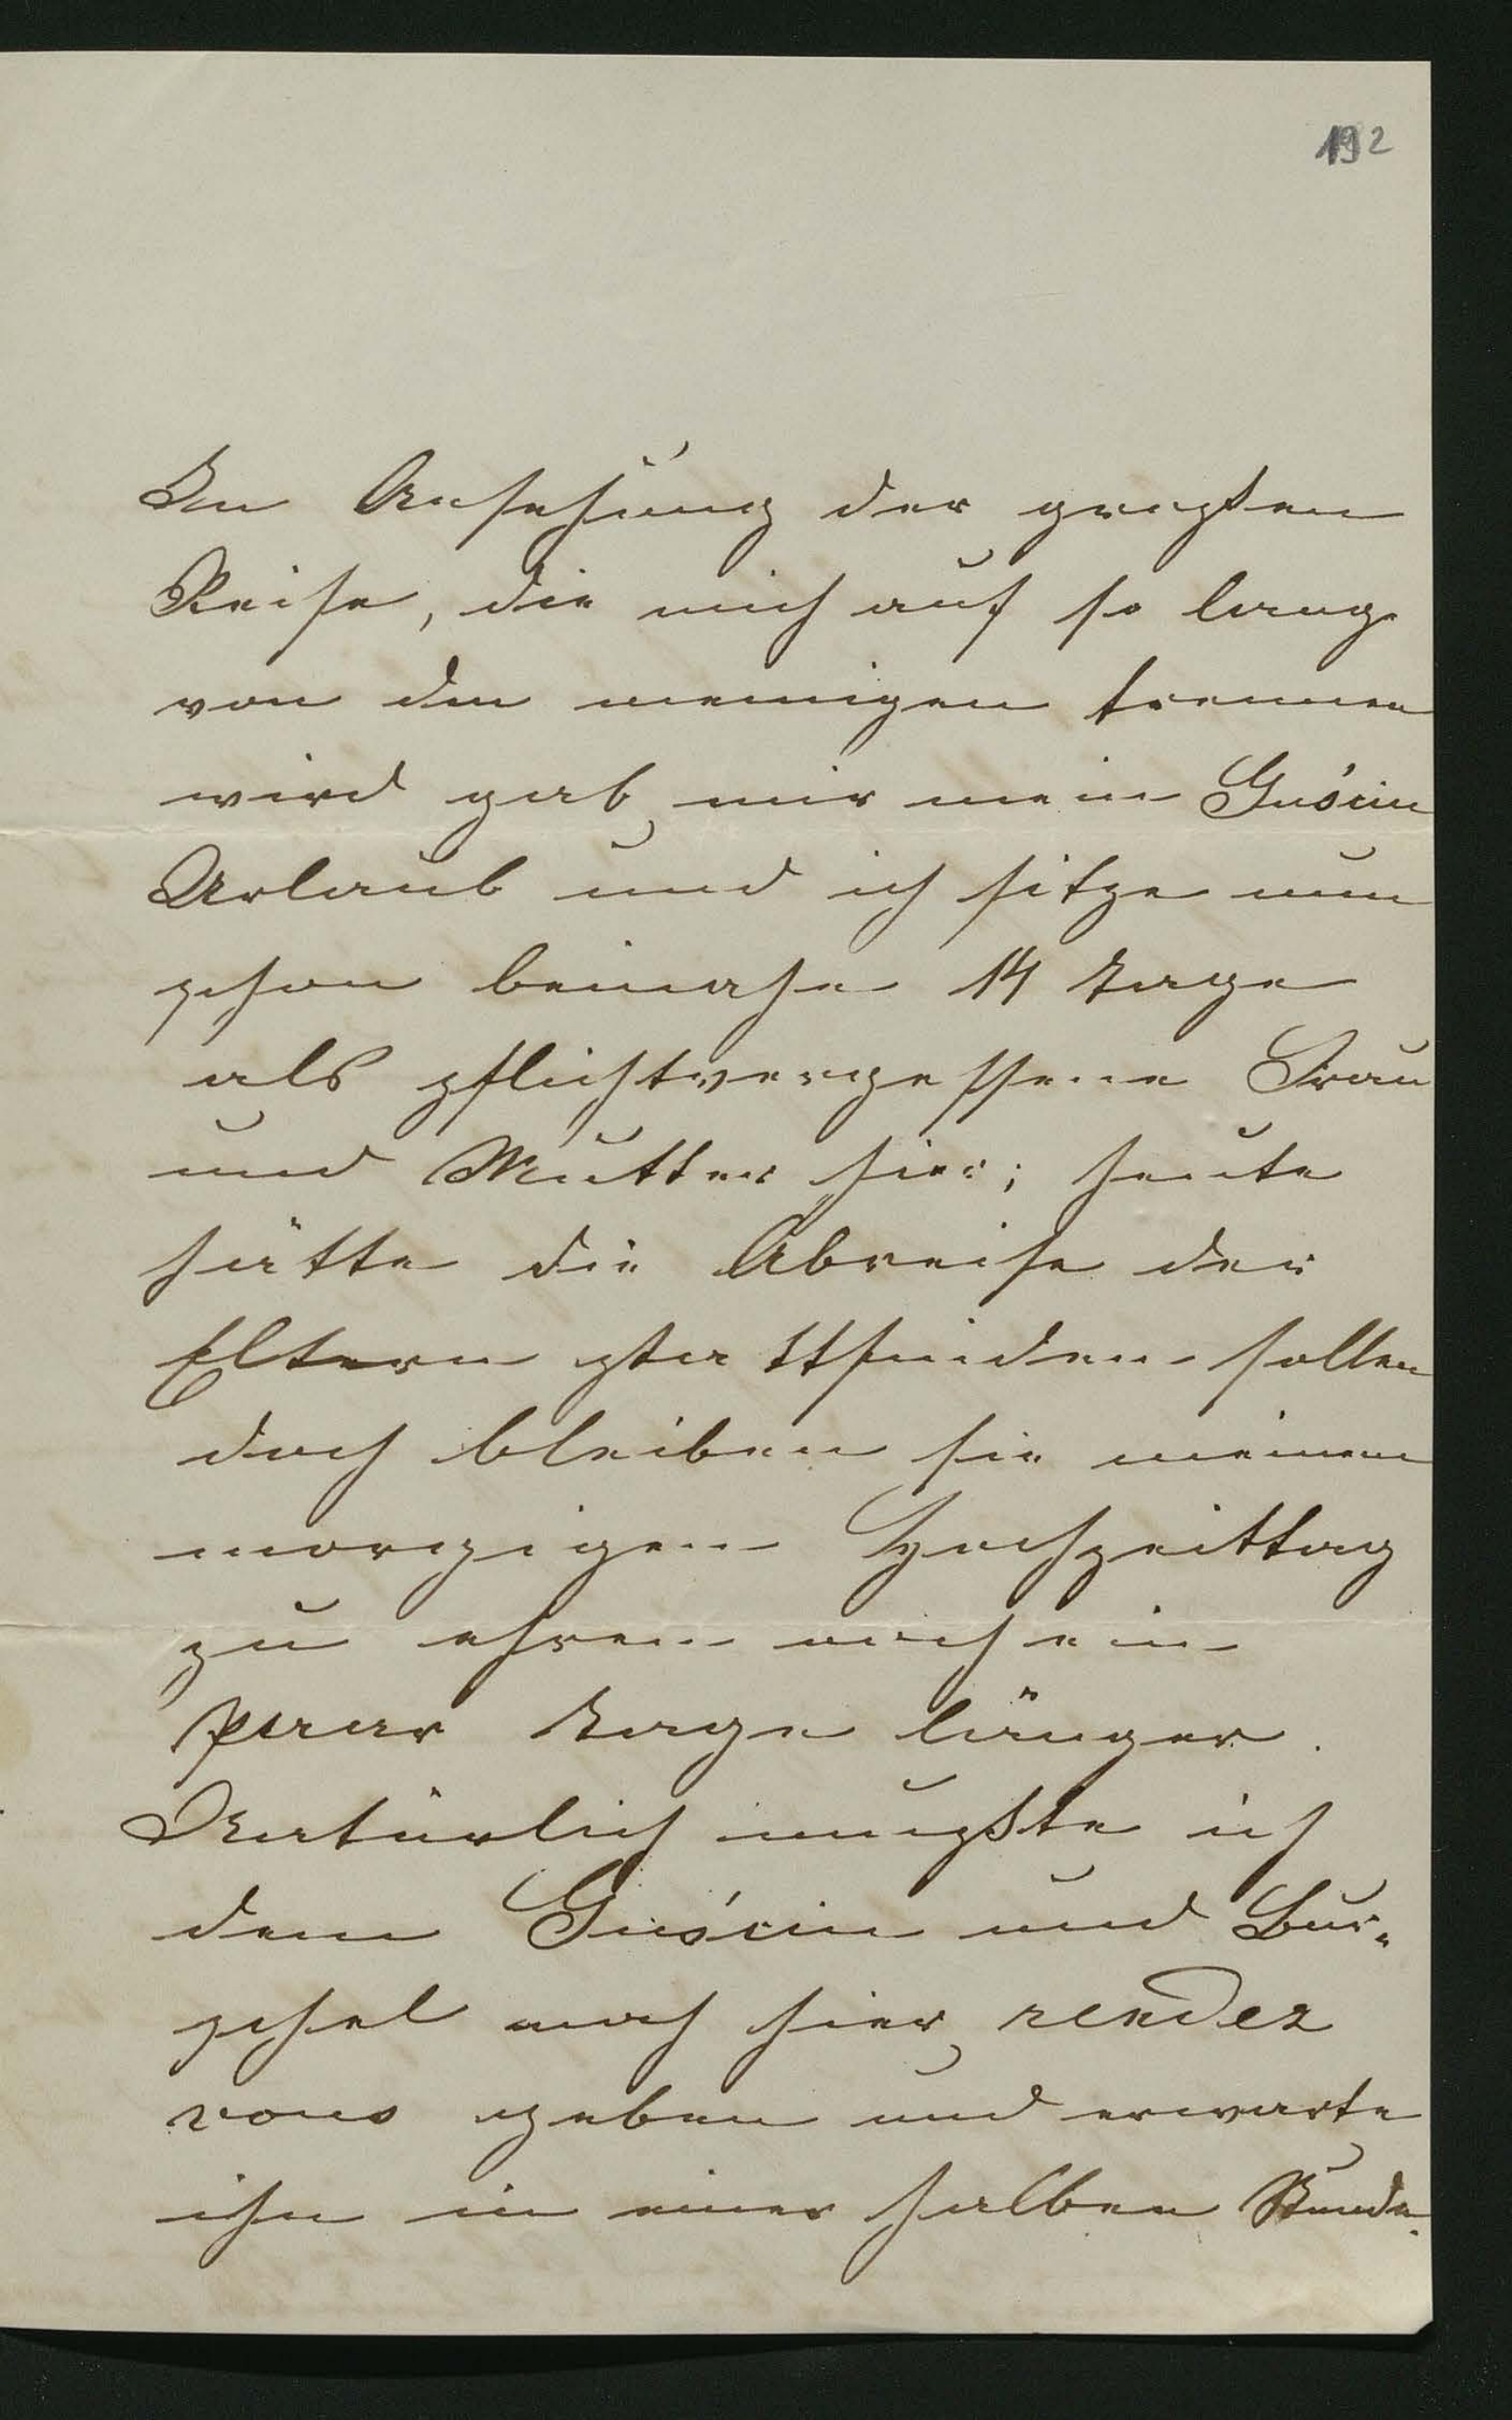 192
In Ansehung der großen
Reise, die mich auf so lang
von den meinigen trennen
wird gab mir mein Guściu
Urlaub und ich sitze nun
schon beinahe 14 Tage
als pflichtvergessene Frau
und Mutter hier; heute
hätte die Abreise der
Eltern stattfinden sollen
doch bleiben sie meinen
morgigen Hochzeittag
zu ehren noch ein
paar Tage länger.
Natürlich mußte ich
dem Guściu und Bur¬
schel auch hier rendez
vous geben und erwarte
ihn in einer halben Stunde.